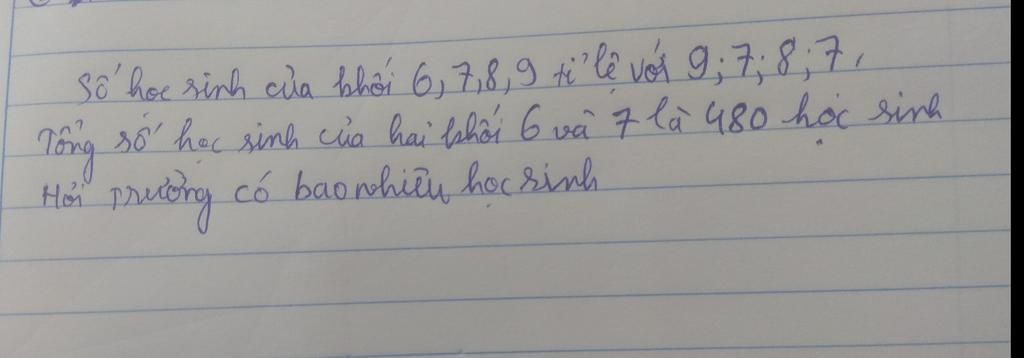 Số học sinh của khối 6,7,8,9 tỉ lệ với 9;7;8;7,
Tổng số học sinh của hai khối 6 và 7 là 480 học sinh
Hỏi trường có bao nhiêu học sinh